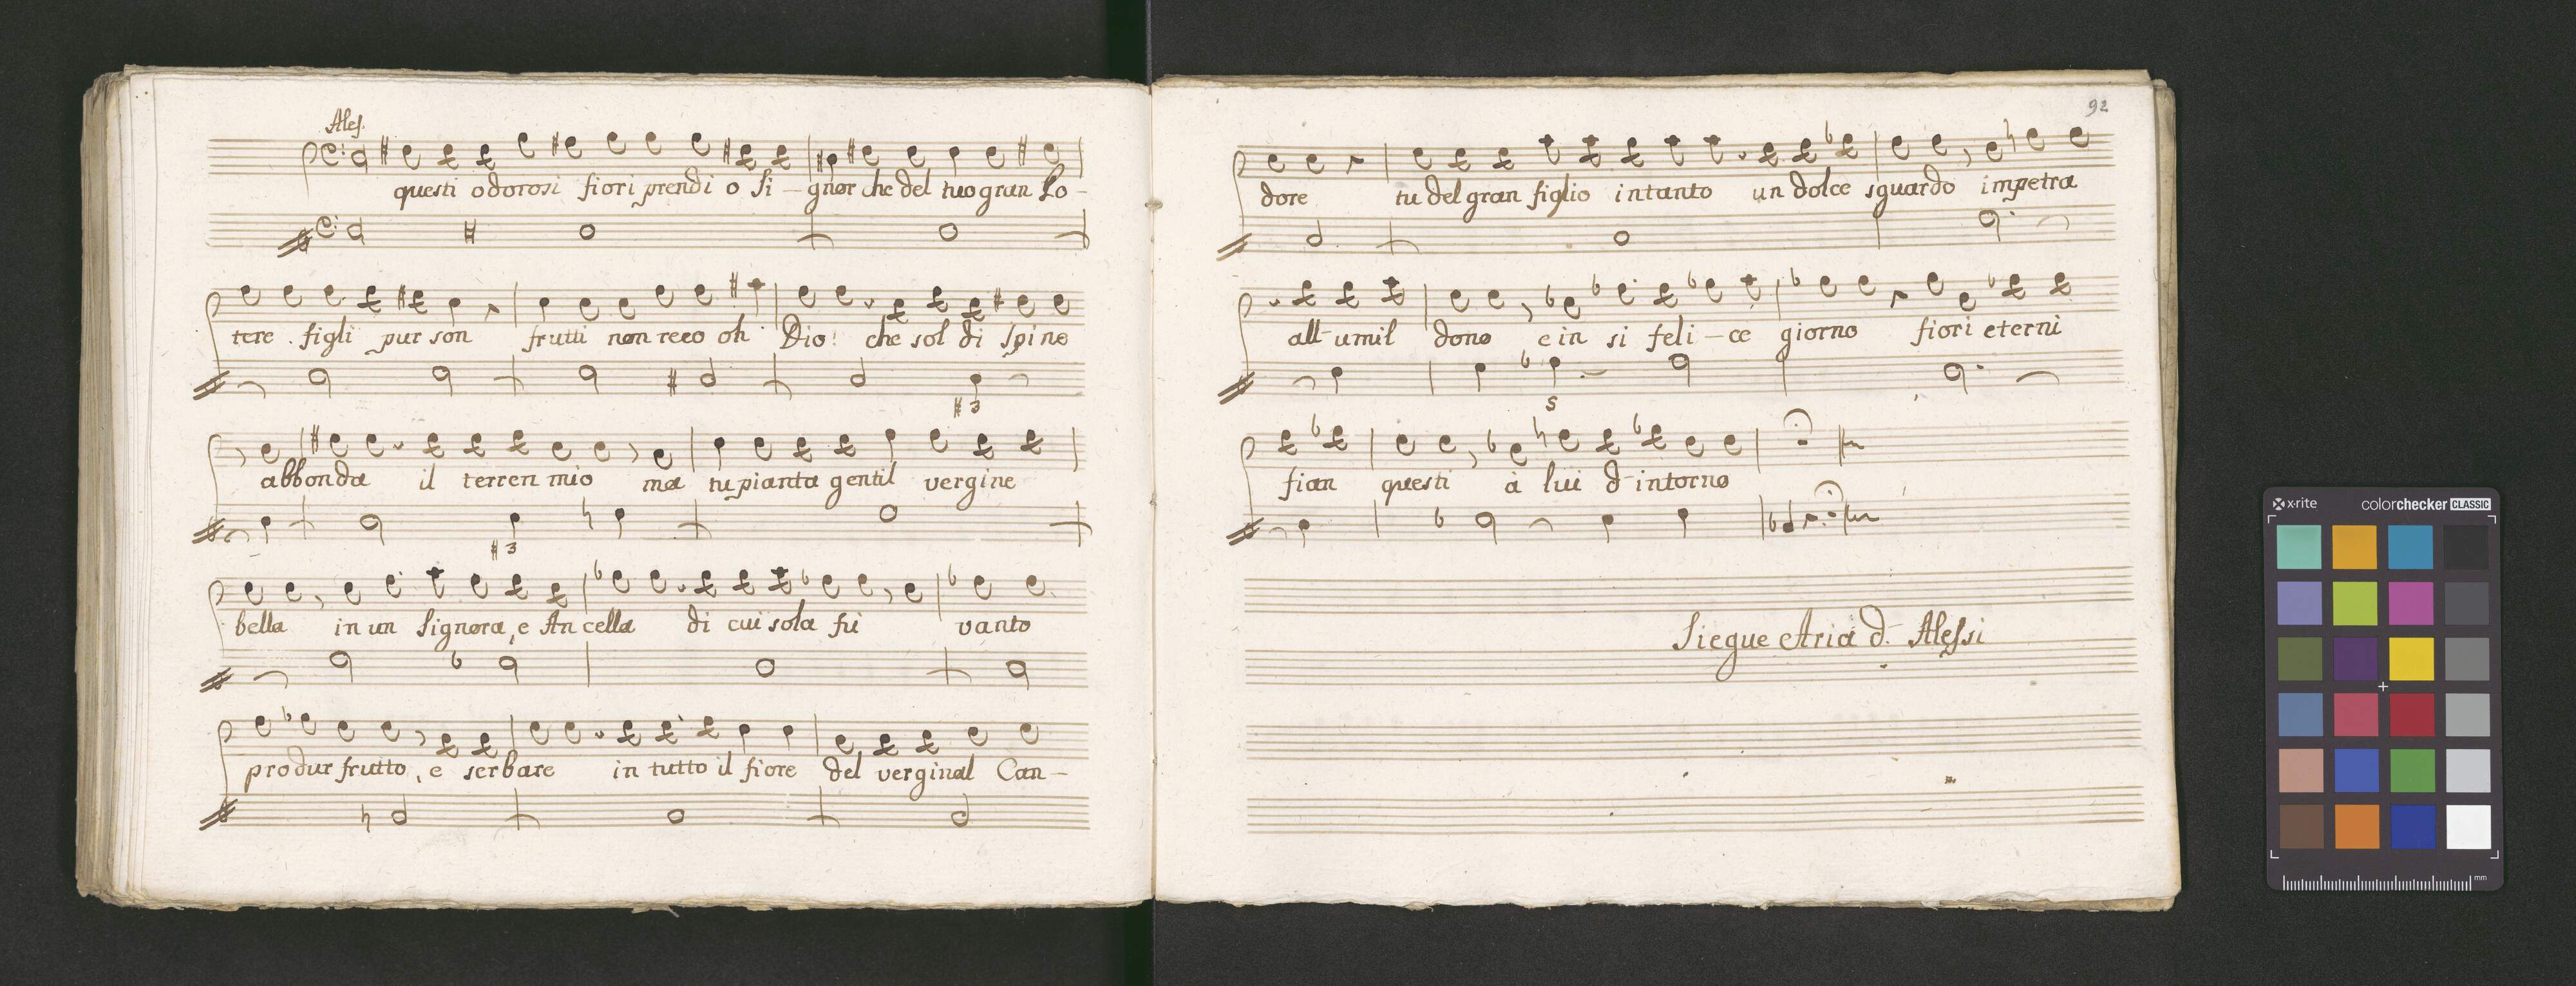 Ales.
questi odorosi fiori prendi o Si - gnor che del tuo gran Po -
tere figli pur son frutti non reco oh Dio! che sol di spine
#3
abbonda il terren mio ma tu pianta gentil vergine
#3
bella in un Signora, e Ancella di cui sola fù vanto
produr frutto, e serbare in tutto il fiore del verginal Can -
92
dore tu del gran figlio intanto un dolce sguardo impetra
all umil dono e in si feli - ce giorno fiori eterni
5
fian questi à lui d intorno
Siegue Aria d. Alessi
x-rite colorchecker CLASSIC
mm